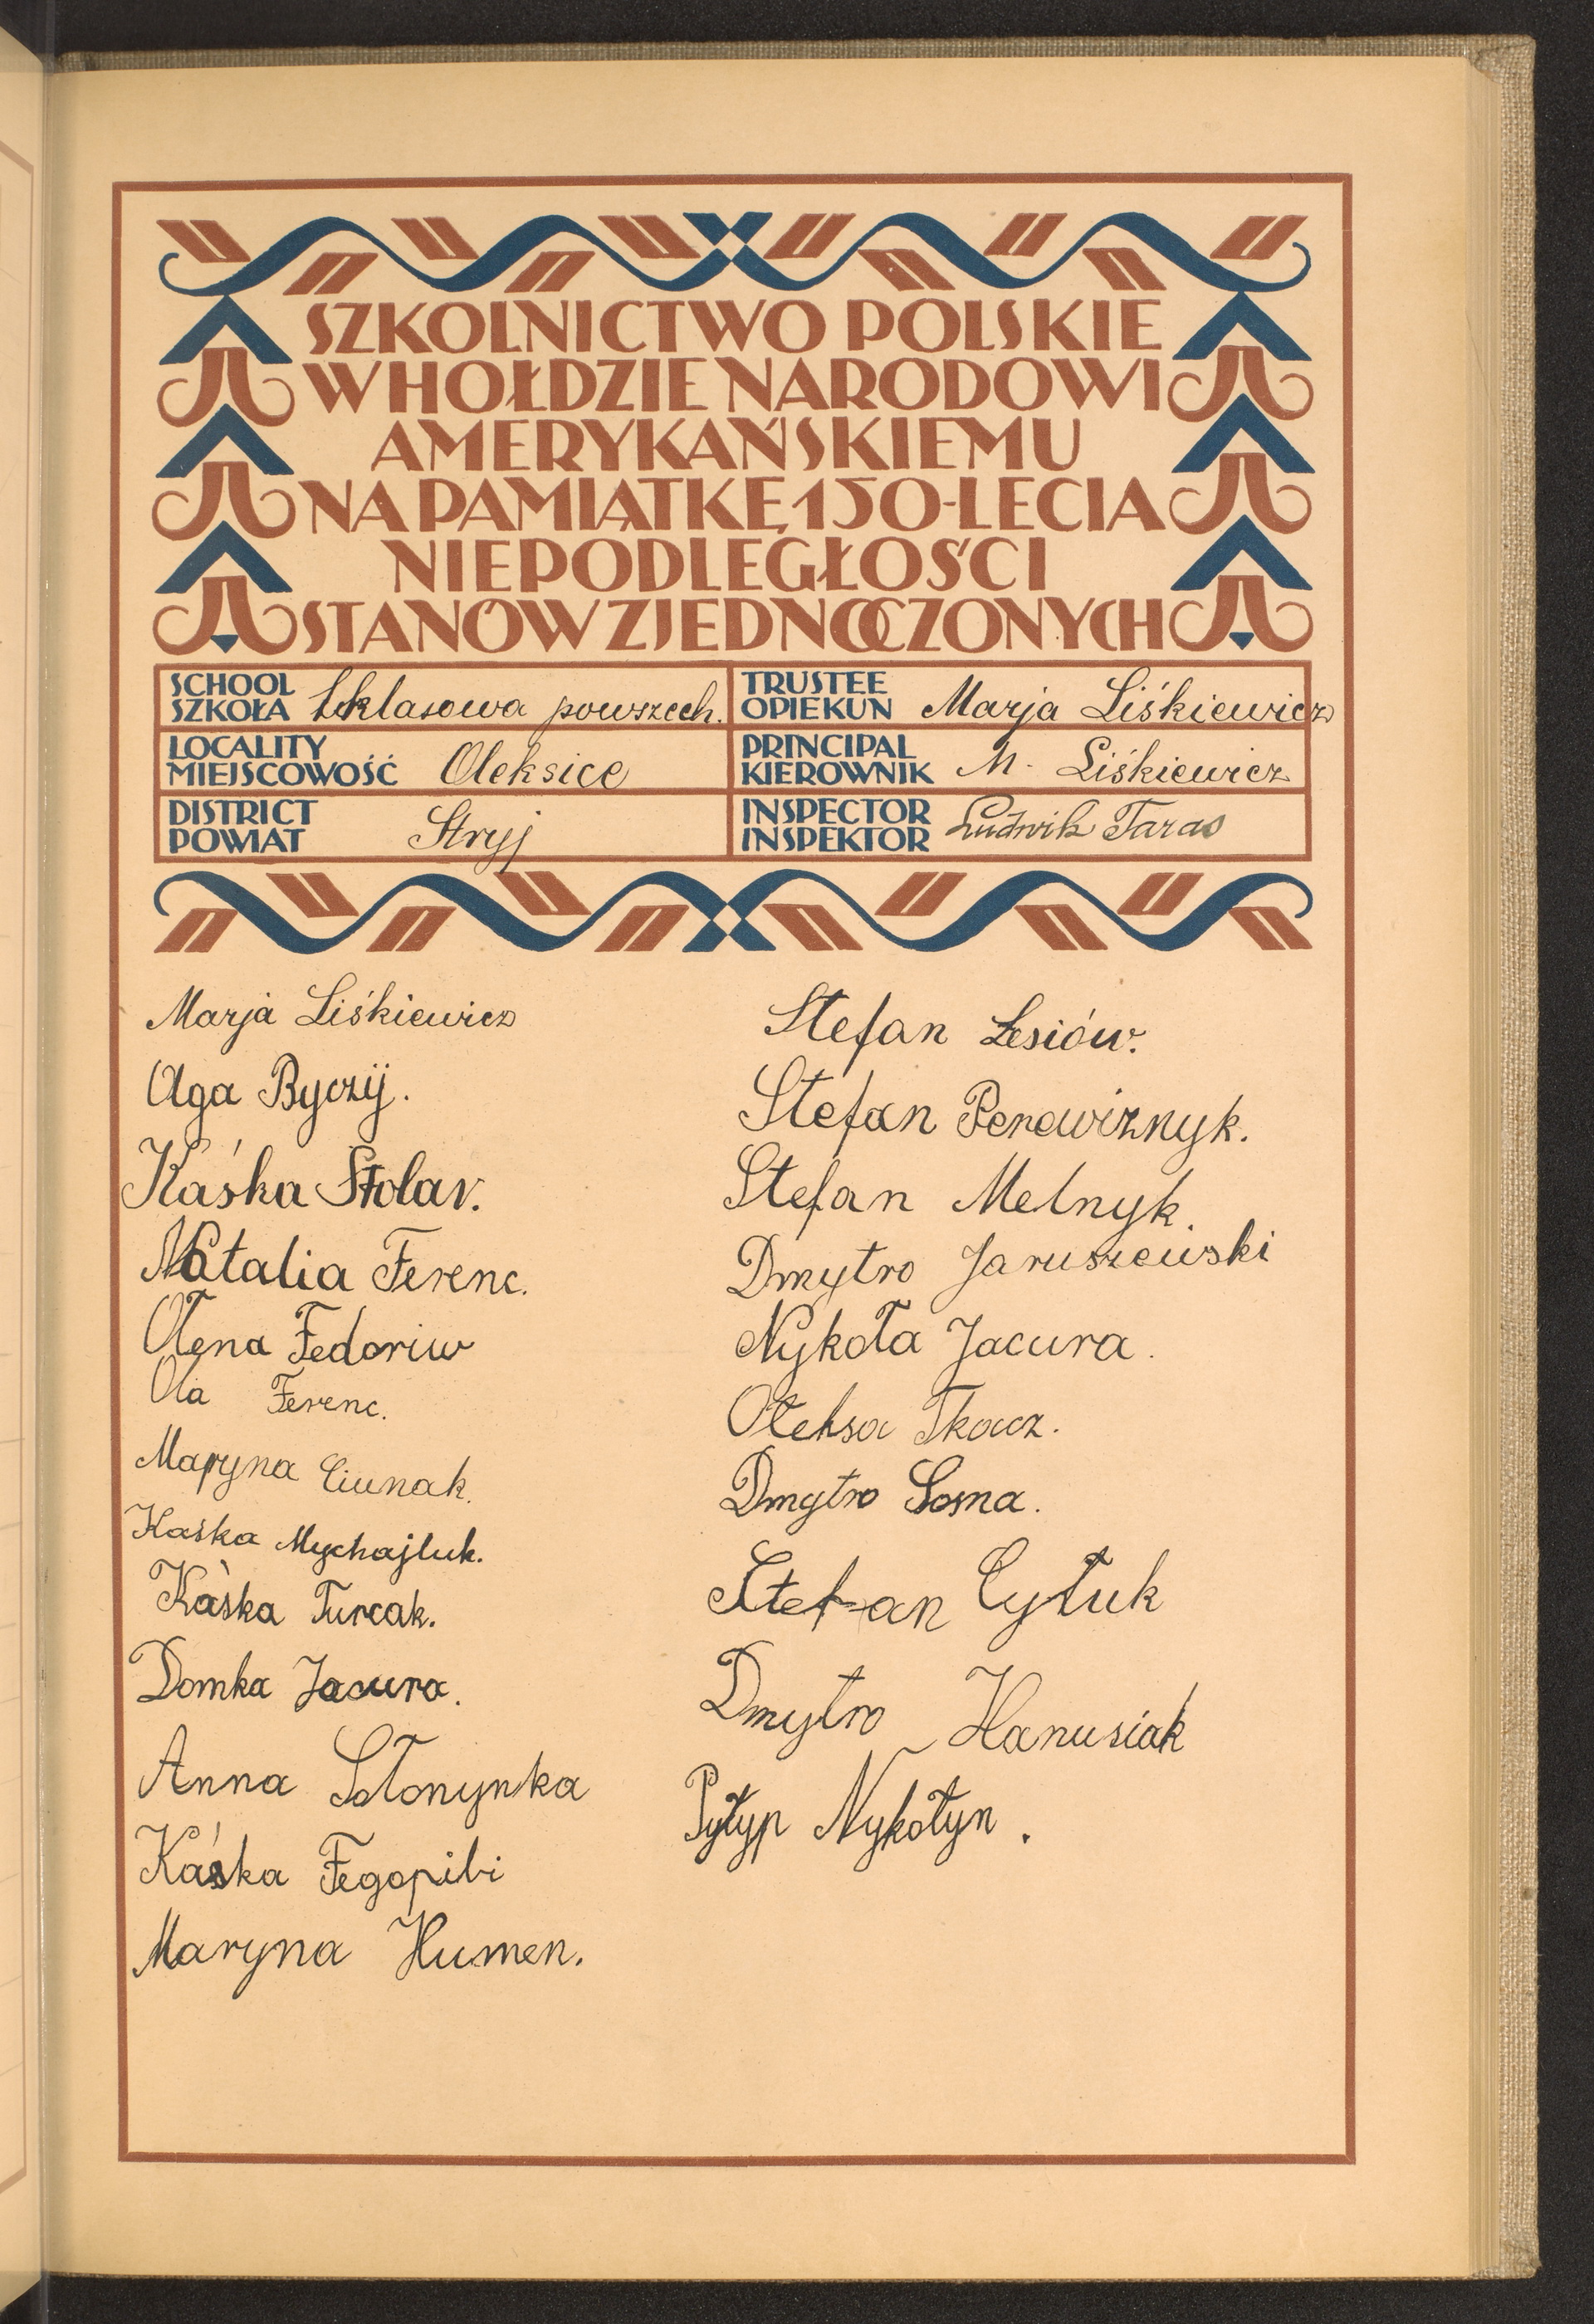 SZKOLNICTWO POLSKIE
W HOŁDZIE NARODOWI
AMERYKAŃSKIEMU
NA PAMIĄTKĘ 150-LECIA
NIEPODLEGŁOŚCI
STANÓW ZJEDNOCZONYCH
SCHOOL
SZKOŁA klasowa powszech.
TRUSTEE
OPIEKUN Marja Liśkiewicz
LOCALITY
MIEJSCOWOŚĆ Oleksice
PRINCIPAL
KIEROWNIK M. Liśkiewicz
DISTRICT
POWIAT Stryj
INSPECTOR
INSPEKTOR Ludwik Taras
Marja Liśkiewicz
Olga Byczij.
Kaśka Stolar.
Natalia Ferenc.
Ołena Fedoriw
Ola Ferenc.
Maryna Ciunak.
Kaśka Mychajluk.
Kaśka Turcak.
Domka Jacura.
Anna Sołonynka
Kaśka
Maryna Humen.
Stefan Lesiów.
Stefan Perewiznyk.
Stefan Melnyk.
Dmytro Jaruszewski
Nykoła Jacura.
Ołeksa Tkacz.
Dmytro Sosna.
Stefan Cyłuk
Dmytro Hanusiak
Pyłyp Nykołyn.